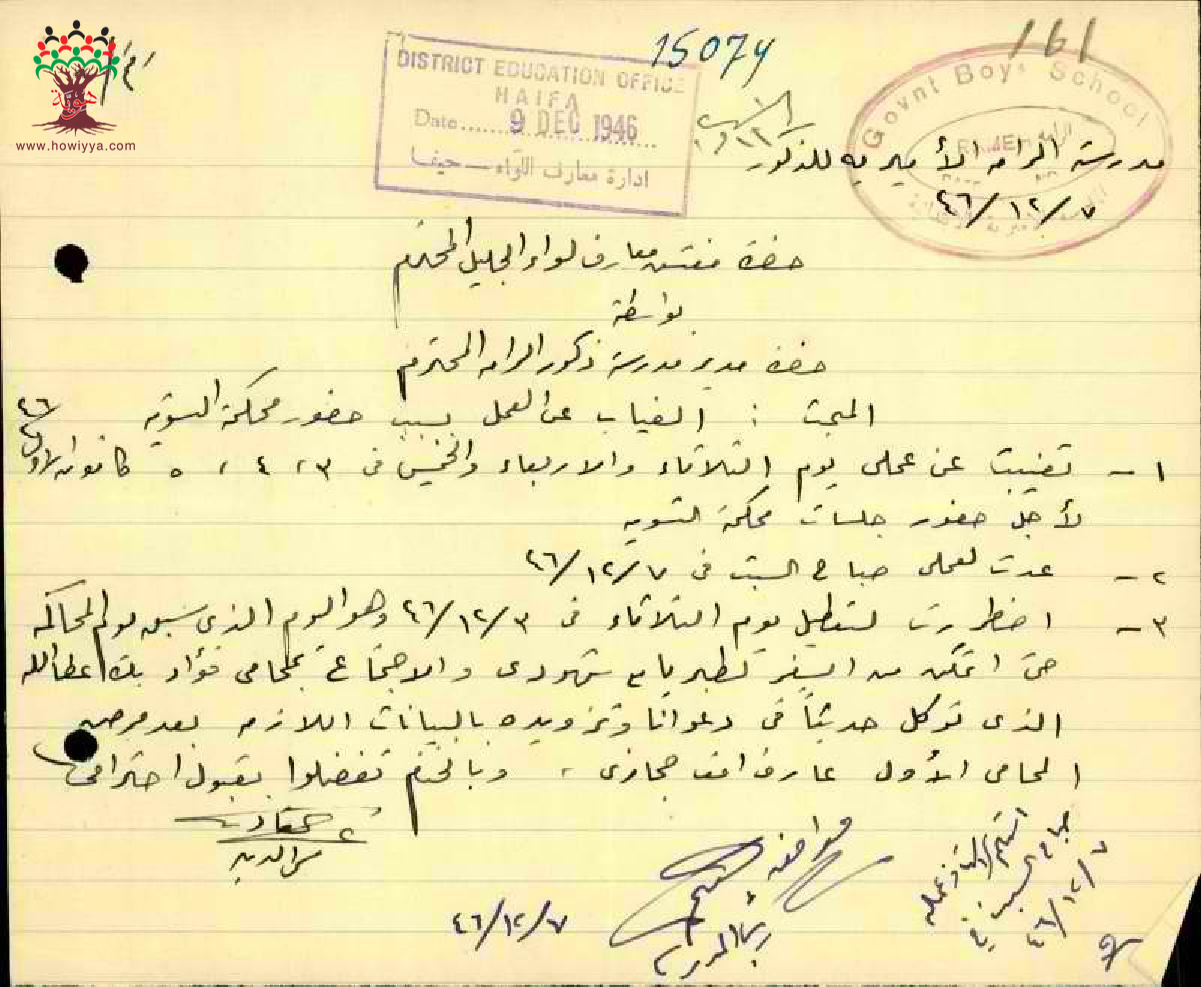 161
15074
www.howiyya.com
DISTRICT EDUCATION OFFICE
HAIFA
Date..... 9 DEC 1946
ادارة معارف اللواء — حيفا
Govnt Boys School
RAMEH
الرامه
مدرسة الرامه الأميريه للذكور
٤٦/١٢/٧
حضرة مفتش معارف لواء الجليل المحترم
بواسطة
حضرة مدير مدرسة ذكور الرامه المحترم
المبحث : الغياب عن العمل بسبب حضور محكمة التسويه
١ - تغيبت عن عملي يوم الثلاثاء والاربعاء والخميس في ٣، ٤ ، ٥ كانون الاول ٤٦
لأجل حضور جلسات محكمة التسويه
٢ - عدت لعملي صباح السبت في ٤٦/١٢/٧
٣ - اضطررت لتعطيل يوم الثلاثاء في ٤٦/١٢/٣ وهو اليوم الذي سبق يوم المحاكمه
حتى اتمكن من السفر لطبريا مع شهودي والاجتماع بمحامي فؤاد بك عطاالله
الذي توكل حديثاً في دعوانا وتزويده بالبيانات اللازمه بعد مرض
المحامي الأول عارف افندي حجازي ، وبالختام تفضلوا بقبول احترامي
موافقه
استلم الاستاذ عمله
صباح السبت في
٤٦/١٢/٧
٤٦/١٢/٧